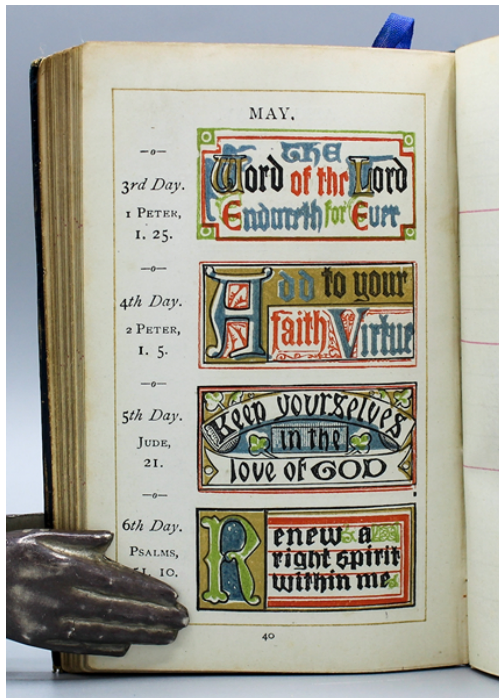 MAY.
3rd Day.
1 PETER,
1. 25.
THE
Word of the Lord
Endureth for Ever
4th Day.
2 PETER,
1. 5.
Add to your
faith Virtue
5th Day.
JUDE,
21.
Keep yourselves
in the
love of GOD
6th Day.
PSALMS,
51. 10.
Renew a
right spirit
within me
40